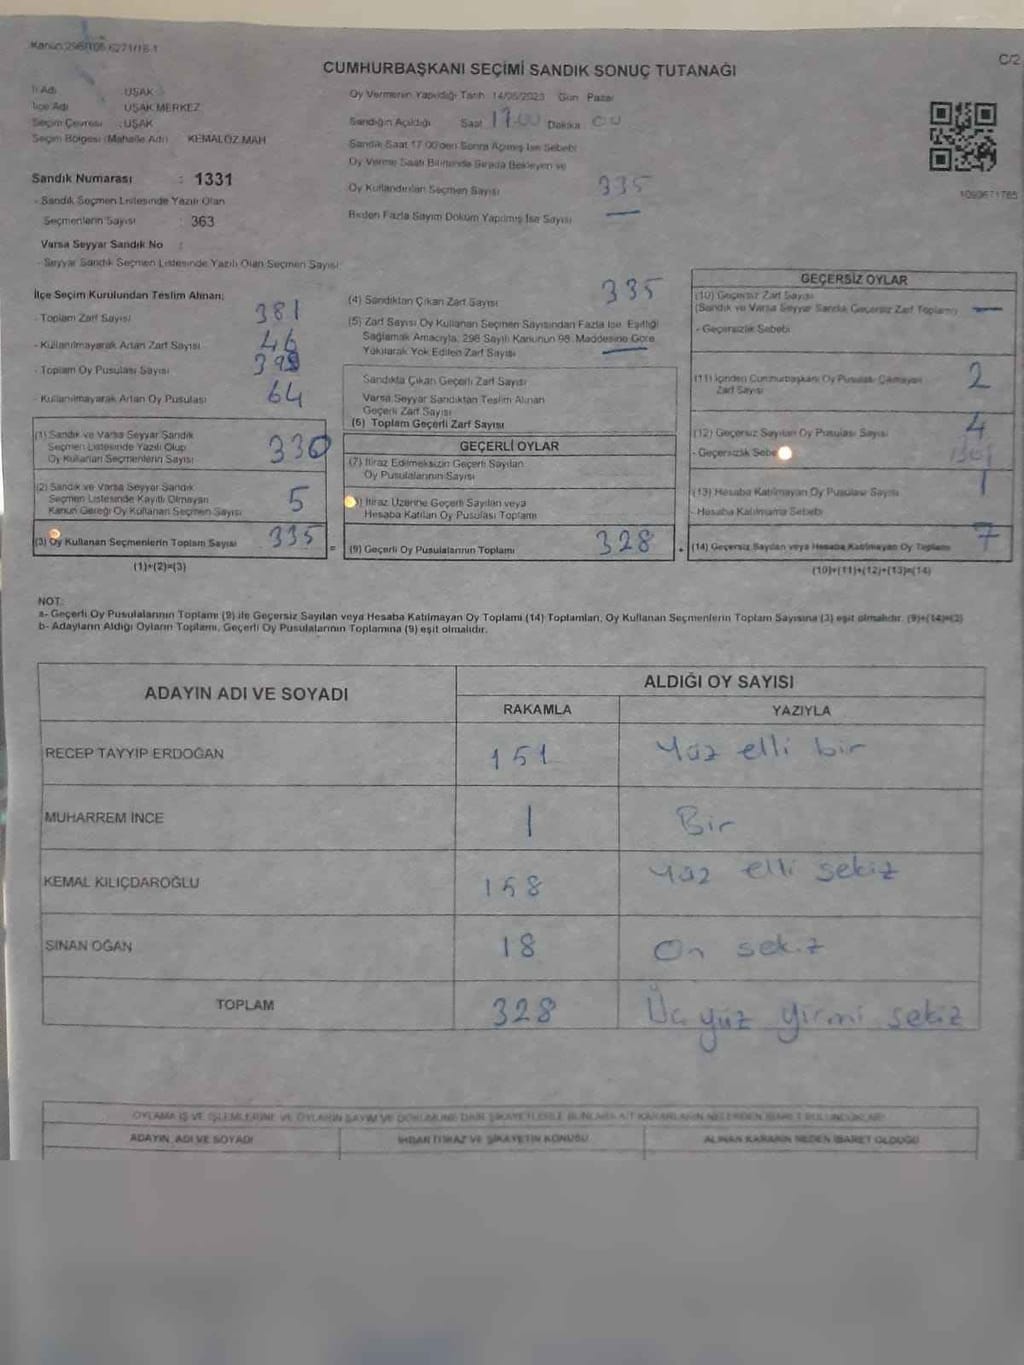 Kanun:298/105 6271/18-1
C/2
CUMHURBAŞKANI SEÇİMİ SANDIK SONUÇ TUTANAĞI
İl Adı UŞAK
İlçe Adı UŞAK MERKEZ
Seçim Çevresi : UŞAK
Seçim Bölgesi (Mahalle Adı) KEMALÖZ MAH
Oy Vermenin Yapıldığı Tarih 14/05/2023 Gün Pazar
Sandığın Açıldığı Saat 17:00 Dakika 00
Sandık Saat 17.00'den Sonra Açılmış İse Sebebi
Oy Verme Saati Bitiminde Sırada Bekleyen ve
Oy Kullandırılan Seçmen Sayısı 335
Birden Fazla Sayım Döküm Yapılmış İse Sayısı —
1090671765
Sandık Numarası : 1331
- Sandık Seçmen Listesinde Yazılı Olan
Seçmenlerin Sayısı : 363
Varsa Seyyar Sandık No :
- Seyyar Sandık Seçmen Listesinde Yazılı Olan Seçmen Sayısı
İlçe Seçim Kurulundan Teslim Alınan:
- Toplam Zarf Sayısı 381
- Kullanılmayarak Artan Zarf Sayısı 46
- Toplam Oy Pusulası Sayısı
- Kullanılmayarak Artan Oy Pusulası 64
(1) Sandık ve Varsa Seyyar Sandık
Seçmen Listesinde Yazılı Olup
Oy Kullanan Seçmenlerin Sayısı 330
(2) Sandık ve Varsa Seyyar Sandık
Seçmen Listesinde Kayıtlı Olmayan
Kanun Gereği Oy Kullanan Seçmen Sayısı 5
(3) Oy Kullanan Seçmenlerin Toplam Sayısı 335
(1)+(2)=(3)
(4) Sandıktan Çıkan Zarf Sayısı 335
(5) Zarf Sayısı Oy Kullanan Seçmen Sayısından Fazla İse, Eşitliği
Sağlamak Amacıyla, 298 Sayılı Kanunun 98. Maddesine Göre
Yakılarak Yok Edilen Zarf Sayısı —
Sandıkta Çıkan Geçerli Zarf Sayısı
Varsa Seyyar Sandıktan Teslim Alınan
Geçerli Zarf Sayısı
(6) Toplam Geçerli Zarf Sayısı
GEÇERLİ OYLAR
(7) İtiraz Edilmeksizin Geçerli Sayılan
Oy Pusulalarının Sayısı
) İtiraz Üzerine Geçerli Sayılan veya
Hesaba Katılan Oy Pusulası Toplamı
=
(9) Geçerli Oy Pusulalarının Toplamı 328
GEÇERSİZ OYLAR
(10) Geçersiz Zarf Sayısı
(Sandık ve Varsa Seyyar Sandık Geçersiz Zarf Toplamı) —
- Geçersizlik Sebebi
(11) İçinden Cumhurbaşkanı Oy Pusulası Çıkmayan
Zarf Sayısı 2
(12) Geçersiz Sayılan Oy Pusulası Sayısı 4
- Geçersizlik Sebe
(13) Hesaba Katılmayan Oy Pusulası Sayısı 1
- Hesaba Katılmama Sebebi
(14) Geçersiz Sayılan veya Hesaba Katılmayan Oy Toplamı 7
(10)+(11)+(12)+(13)=(14)
NOT:
a- Geçerli Oy Pusulalarının Toplamı (9) ile Geçersiz Sayılan veya Hesaba Katılmayan Oy Toplamı (14) Toplamları, Oy Kullanan Seçmenlerin Toplam Sayısına (3) eşit olmalıdır. (9)+(14)=(3)
b- Adayların Aldığı Oyların Toplamı, Geçerli Oy Pusulalarının Toplamına (9) eşit olmalıdır.
ADAYIN ADI VE SOYADI
ALDIĞI OY SAYISI
RAKAMLA YAZIYLA
RECEP TAYYİP ERDOĞAN 151 Yüz elli bir
MUHARREM İNCE 1 Bir
KEMAL KILIÇDAROĞLU 158 Yüz elli sekiz
SİNAN OĞAN 18 On sekiz
TOPLAM 328 Üç yüz yirmi sekiz
OYLAMA İŞ VE İŞLEMLERİNE VE OYLARIN SAYIM VE DÖKÜMÜNE DAİR ŞİKAYETLERLE BUNLARA AİT KARARLARIN NELERDEN İBARET BULUNDUKLARI
ADAYIN ADI VE SOYADI İHBAR İTİRAZ VE ŞİKAYETİN KONUSU ALINAN KARARIN NEDEN İBARET OLDUĞU